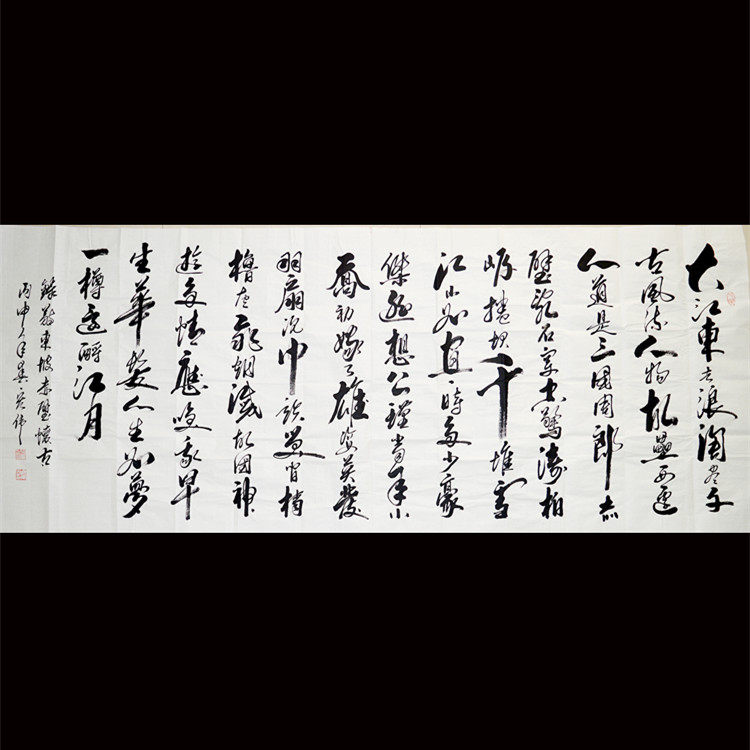 大江東去浪淘盡千
古風流人物故壘西邊
人道是三國周郎赤
壁亂石穿空驚濤拍
岸捲起千堆雪
江山如畫一時多少豪
傑遙想公瑾當年小
喬初嫁了雄姿英發
羽扇綸巾談笑間檣
櫓灰飛煙滅故國神
遊多情應笑我早
生華髮人生如夢
一樽還酹江月
錄蘇東坡赤壁懷古
丙申年吳偉